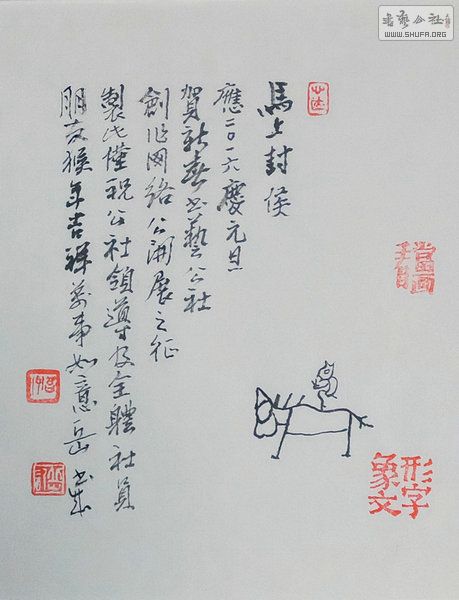 書藝公社
WWW.SHUFA.ORG
馬上封侯
應二〇一六慶元旦
賀新春书藝公社
創作网络公開展之征
製此僅祝公社領導及全體社員
朋友猴年吉祥萬事如意岳
象形
文字